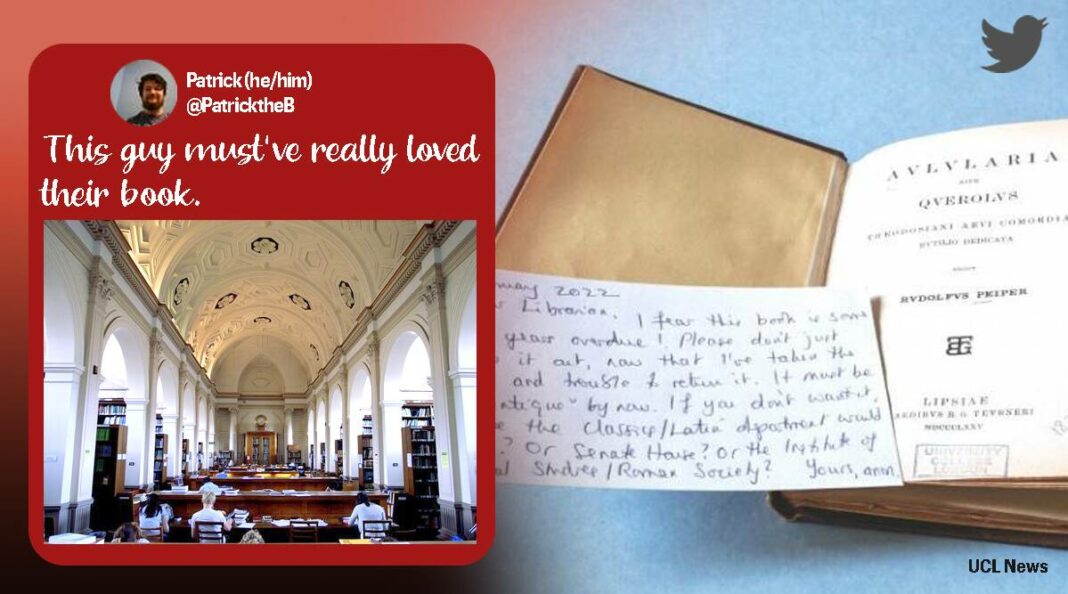 Patrick (he/him)
@PatricktheB
This guy must've really loved
their book.
may 2022
Librarian. I fear this book is some
years overdue! Please don't just
it out, now that I've taken the
and trouble to return it. It must be
by now. If you don't want it,
the Classics/Latin department would
? Or Senate House? Or the Institute of
Studies/Roman Society? Yours, anon.
AVLVLARIA
SIVE
QVEROLVS
THEODOSIANI AEVI COMOEDIA
RVTILIO DEDICATA
EDIDIT
RVDOLFVS PEIPER
LIPSIAE
AEDIBVS B G TEVBNERI
MDCCCLXXV
UNIVERSITY
COLLEGE
LONDON
UCL News